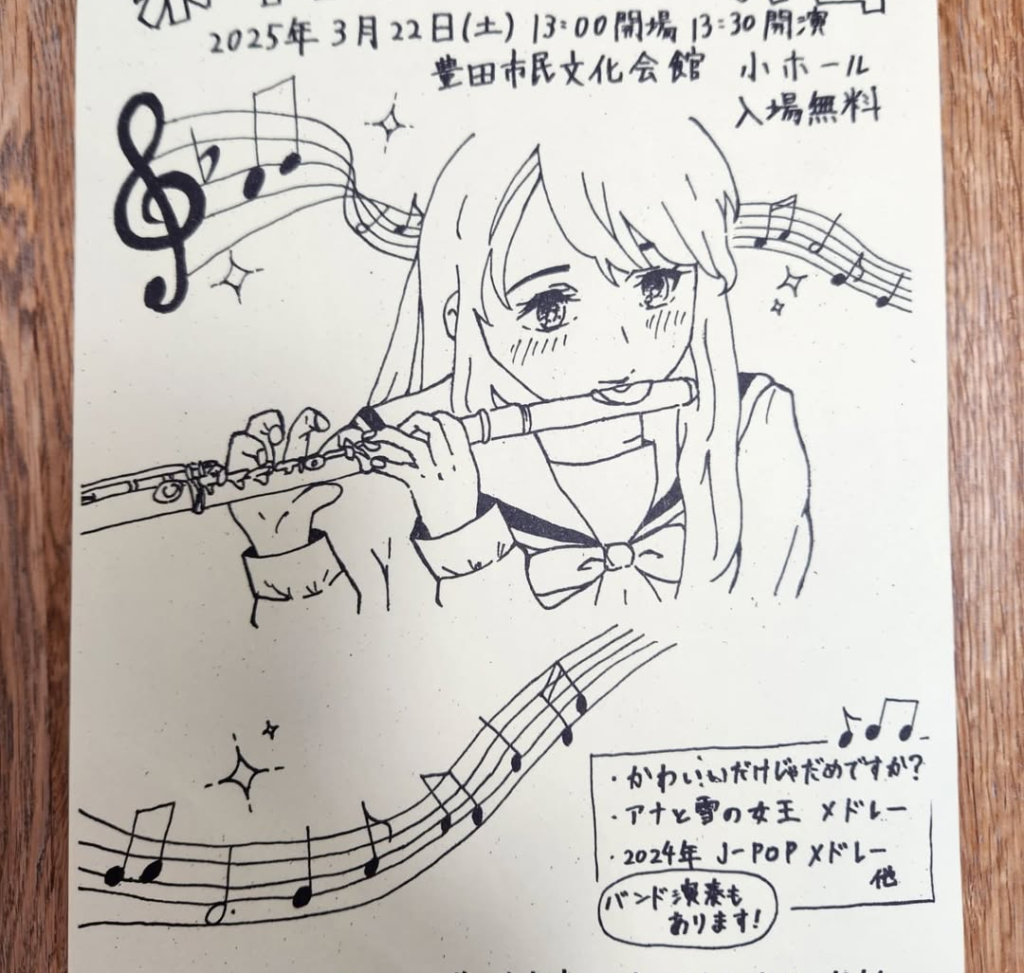 2025年 3月 22日(土) 13:00開場 13:30開演
豊田市民文化会館 小ホール
入場無料
・かわいいだけじゃだめですか?
・アナと雪の女王 メドレー
・2024年 J-POP メドレー
他
バンド演奏も
あります!